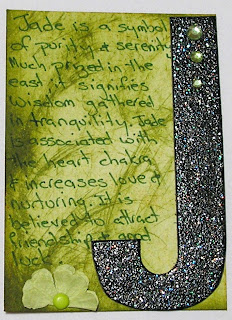 Jade is a symbol
of purity & serenity
Much prized in the
east, it signifies
wisdom gathered
in tranquility. Jade
is associated with
the heart chakra
& increases love &
nurturing. It is
believed to attract
friendship & good
luck
J